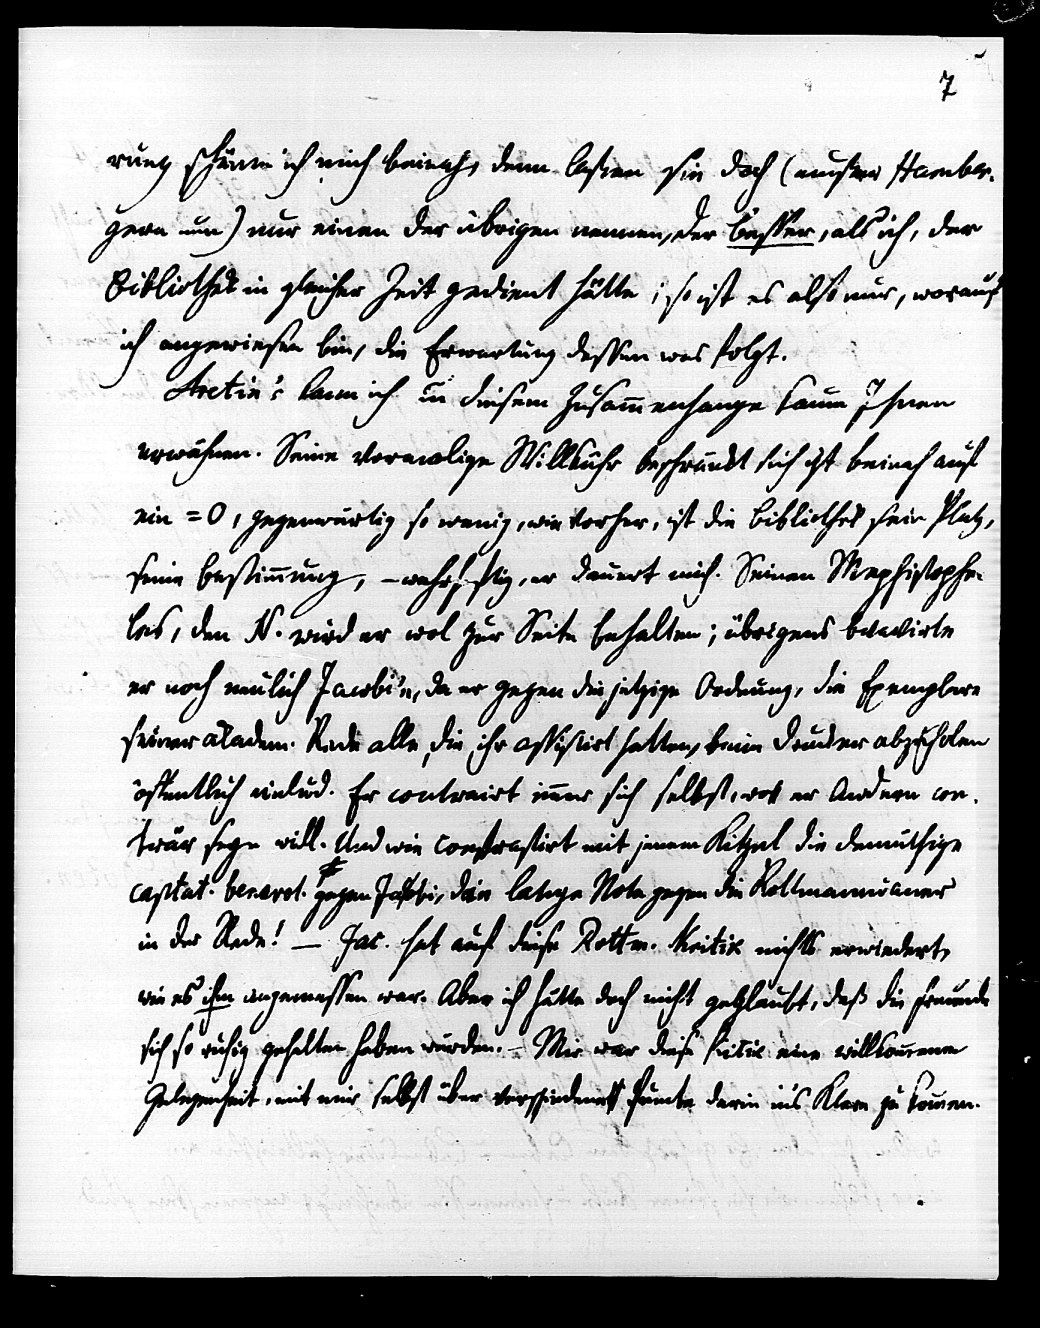 7
rung schäme ich mich beinah, denn lassen Sie doch (ausser Hamber-
gern nun) nur einen der übrigen nennen, der besser, als ich, der
Bibliothek in gleicher Zeit gedient hätte; so ist es also nur, worauf
ich angewiesen bin, die Erwartung dessen was folgt.
Aretin's kann ich in diesem Zusam̄enhange kaum Ihnen
erwähnen. Seine vormalige Willkühr beschränkt sich izt beinah auf
ein = 0, gegenwärtig so wenig, wie vorher, ist die Bibliothek sein Platz,
seine Bestim̄ung, – wahrhaftig, er dauert mich. Seinen Mephistophe-
les, den N. wird er wol zur Seite behalten; übrigens
er noch neulich Jacobi'n, da er gegen die jetzige Ordnung, die Exemplare
seiner akadem. Rede alle, die ihr assistirt hatten, beim Drucker abzuholen
öffentlich einlud. Er contrairt im̄er sich selbst, wo er Andern con-
trär seyn will. Und wie contrastirt mit jenem Kitzel die demüthige
captat. benevol. gegen Jacobi, die lange Note gegen die Rottmannianer
in der Rede! — Jac. hat auf diese Rottm. Kritik nichts erwiedert,
wie es ihm angemessen war. Aber ich hätte doch nicht geglaubt, daß die Freunde
sich so ruhig gehalten haben würden. – Mir war diese Kritik eine willkom̄ene
Gelegenheit, mit mir selbst über verschiedene Punkte darin ins Klare zu kom̄en.